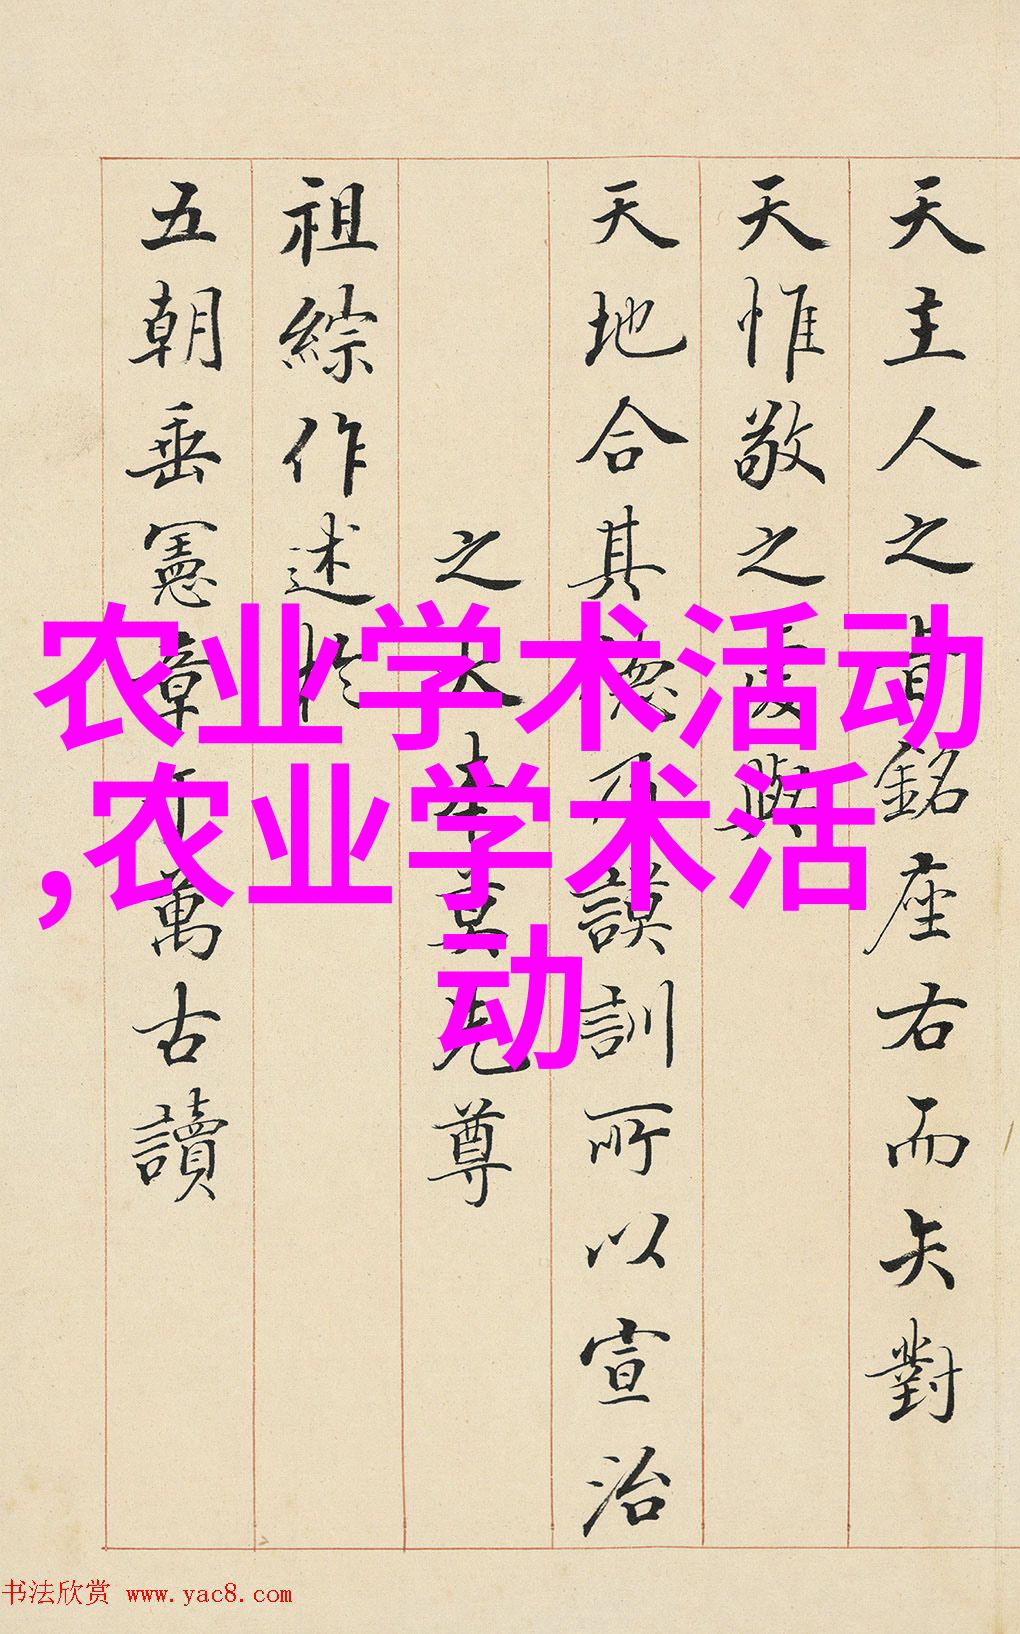 天主人之貞銘座右而矢對
天惟敬之
天地合其德乃謨訓所以宣治
之大本莫先尊
祖綜作述於
五朝垂憲章
萬古讀
农业学术活动
,农业学术活
动
书法欣赏 www.yac8.com